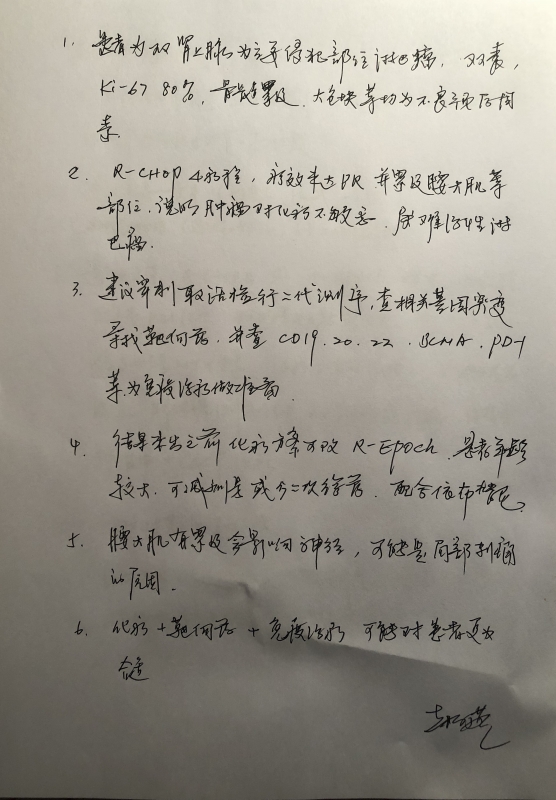 1. 患者为双肾上腺为主要侵犯部位淋巴瘤,双表,
Ki-67 80%,骨髓累及,大包块等均为不良预后因
素.
2. R-CHOP 4疗程,疗效未达PR并累及腰大肌等
部位.说明肿瘤对化疗不敏感.属难治性淋
巴瘤.
3. 建议穿刺取活检行二代测序,查相关基因突变
寻找靶向药.并查 CD19.20.22.BCMA.PD-1
等为免疫治疗做准备.
4. 结果未出之前化疗方案可改 R-EPOCH.患者年龄
较大.可减剂量或分二次给药.配合依布替尼.
5. 腰大肌有累及会影响神经,可能是局部刺痛
的原因.
6. 化疗+靶向药+免疫治疗可能对患者更为
合适